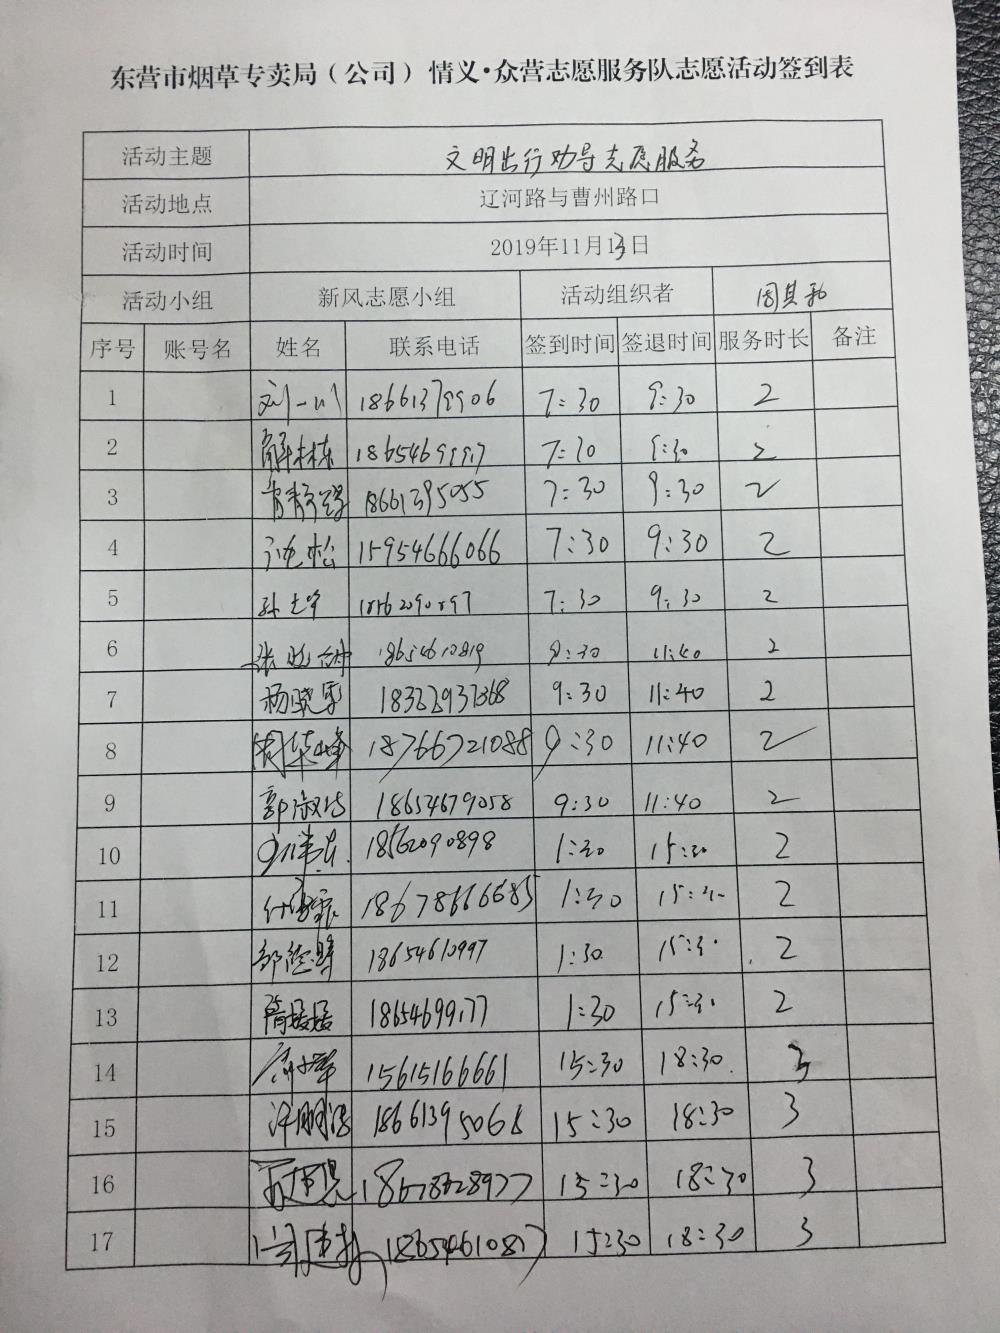 东营市烟草专卖局（公司）情义·众营志愿服务队志愿活动签到表
活动主题 文明出行劝导志愿服务
活动地点 辽河路与曹州路口
活动时间 2019年11月13日
活动小组 新风志愿小组 活动组织者 周其和
序号 账号名 姓名 联系电话 签到时间 签退时间 服务时长 备注
1 刘一川 18661379906 7:30 9:30 2
2 解林栋 7:30 9:30 2
3 18661395055 7:30 9:30 2
4 15954666066 7:30 9:30 2
5 7:30 9:30 2
6 18654610819 9:30 11:40 2
7 杨晓军 9:30 11:40 2
8 周华峰 18766721088 9:30 11:40 2
9 18654679058 9:30 11:40 2
10 18562090898 1:30 15:30 2
11 1:30 15:30 2
12 18654610997 1:30 15:30 2
13 1:30 15:30 2
14 15615166661 15:30 18:30 3
15 18661395068 15:30 18:30 3
16 15:30 18:30 3
17 15:30 18:30 3